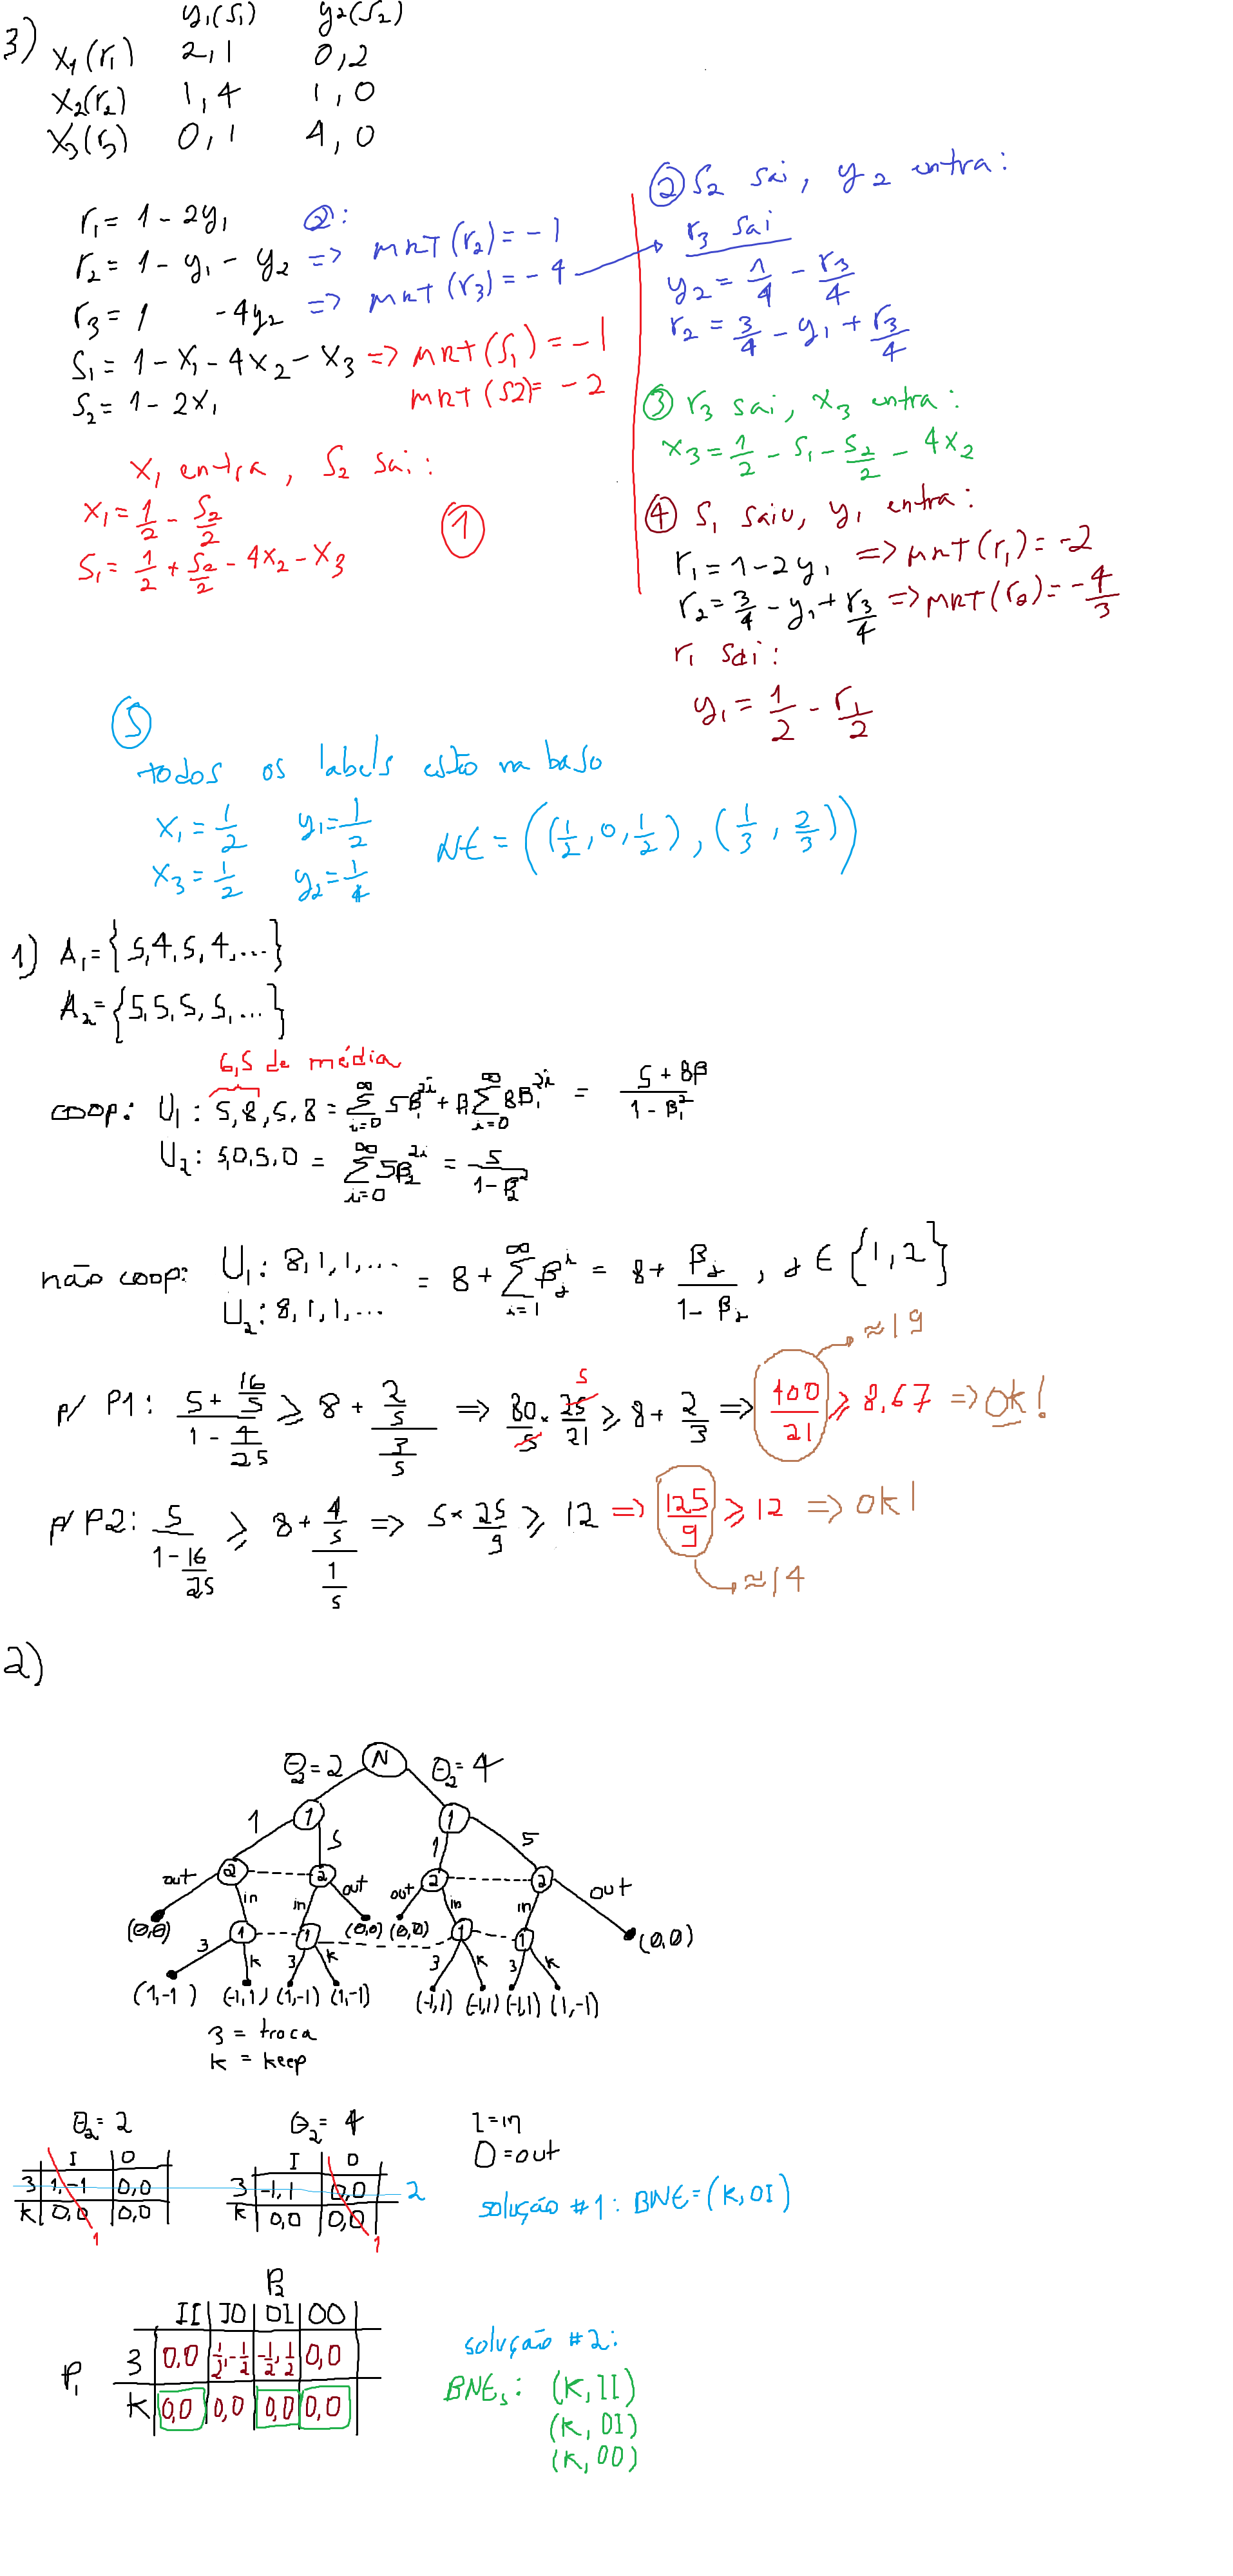 3)
y₁(s₁) y₂(s₂)
x₁(r₁) 2,1 0,2
x₂(r₂) 1,4 1,0
x₃(r₃) 0,1 4,0
r₁ = 1 - 2y₁ ②:
r₂ = 1 - y₁ - y₂ => MRT(r₂) = -1
r₃ = 1 - 4y₂ => MRT(r₃) = -4
s₁ = 1 - x₁ - 4x₂ - x₃ => MRT(s₁) = -1
s₂ = 1 - 2x₁ MRT(s2) = -2
x₁ entra, s₂ sai:
x₁ = 1/2 - s₂/2 ①
s₁ = 1/2 + s₂/2 - 4x₂ - x₃
② s₂ sai, y₂ entra:
r₃ sai
y₂ = 1/4 - r₃/4
r₂ = 3/4 - y₁ + r₃/4
③ r₃ sai, x₃ entra:
x₃ = 1/2 - s₁ - s₂/2 - 4x₂
④ s₁ saiu, y₁ entra:
r₁ = 1 - 2y₁ => MRT(r₁) = -2
r₂ = 3/4 - y₁ + r₃/4 => MRT(r₂) = -4/3
r₁ sai:
y₁ = 1/2 - r₁/2
⑤
todos os labels estão na base
x₁ = 1/2 y₁ = 1/2
x₃ = 1/2 y₂ = 1/4
NE = ((1/2, 0, 1/2), (1/3, 2/3))
1) A₁ = {5,4,5,4,...}
A₂ = {5,5,5,5,...}
6,5 de média
coop: U₁: 5,8,5,8 = ∑_{i=0}^∞ 5β₁^{2i} + β₁∑_{i=0}^∞ 8β₁^{2i} = (5 + 8β)/(1 - β₁²)
U₂: 5,0,5,0 = ∑_{i=0}^∞ 5β₂^{2i} = 5/(1 - β₂²)
não coop: U₁: 8,1,1,...
U₂: 8,1,1,...
= 8 + ∑_{i=1}^∞ β_j^i = 8 + β_j/(1 - β_j), j ∈ {1,2}
≈19
p/ P1: (5 + 16/5)/(1 - 4/25) ≥ 8 + (2/5)/(3/5) => 80/5 × 25/21 ≥ 8 + 2/3 => 400/21 ≥ 8,67 => ok!
5
p/ P2: 5/(1 - 16/25) ≥ 8 + (4/5)/(1/5) => 5 × 25/9 ≥ 12 => 125/9 ≥ 12 => ok!
≈14
2)
θ₂=2 N θ₂=4
1 1
1 5 1 5
out 2 2 out out 2 2 out
in in in in
(0,0) 1 1 (0,0) (0,0) 1 1 (0,0)
3 k 3 k 3 k 3 k
(1,-1) (-1,1) (1,-1) (1,-1) (-1,1) (-1,1) (-1,1) (1,-1)
3 = troca
k = keep
θ₂=2 θ₂=4 I=in
I O I O O=out
3 1,-1 0,0 3 -1,1 0,0 2
K 0,0 0,0 K 0,0 0,0
1 1
solução #1: BNE=(K,OI)
P₂
II IO OI OO
3 0,0 1/2,-1/2 -1/2,1/2 0,0
P₁
K 0,0 0,0 0,0 0,0
solução #2:
BNEs: (K,II)
(K,OI)
(K,OO)